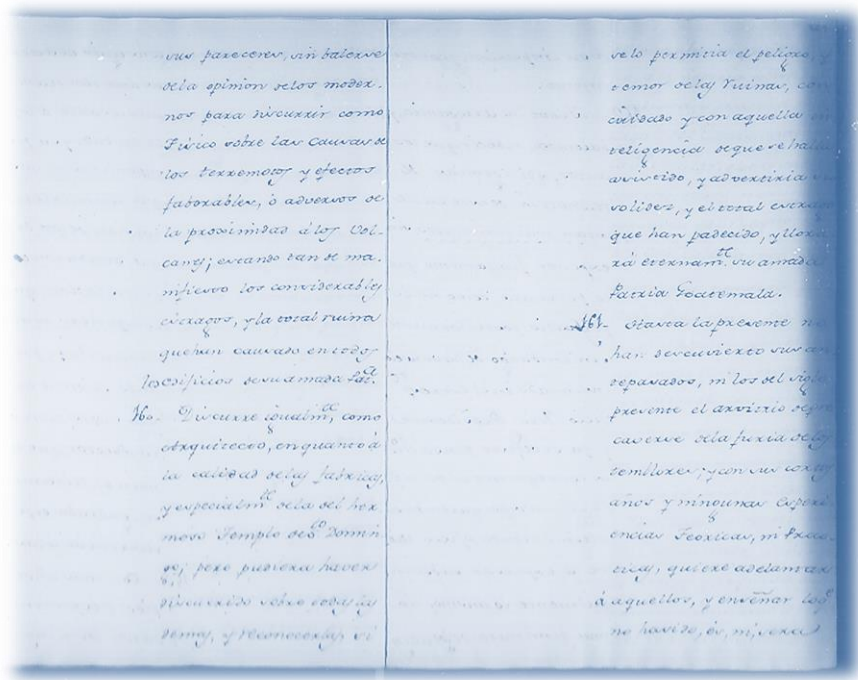 sus pareceres, sin balerse
de la opinion de los moder-
nos para discurrir como
Fisico sobre las causas de
los terremotos y efectos
faborables, ò adversos de
la proximidad á los Vol-
canes; estando tan de ma-
nifiesto los considerables
estragos, y la total ruina
que han causado en todos
los edificios de su amada Pat.
160. Discurre igualm.te, como
Arquitecto, en quanto á
la calidad de las fabricas,
y especialm.te de la del her-
moso Templo de S.to Domin-
go; pero pudiera haver
discurrido sobre todas las
demas, y reconocerlas, si
se lo permitia el peligro, y
temor de las Ruinas, con
cuidado y con aquella in-
teligencia de que se halla
asistido, y advertiria su
solidez, y el total estrago
que han padecido, y llora-
rá eternam.te su amada
Patria Goatemala.
161. Hasta la presente no
han descuvierto sus an-
tepasados, ni los del siglo
presente el arvitrio de pre-
caverse de la furia de los
temblores; y con sus cortos
años y ningunas Experi-
encias Teoricas, ni Prac-
ticas, quiere adelantar
á aquellos, y enseñar lo q.e
no ha sido, és, ni, sera